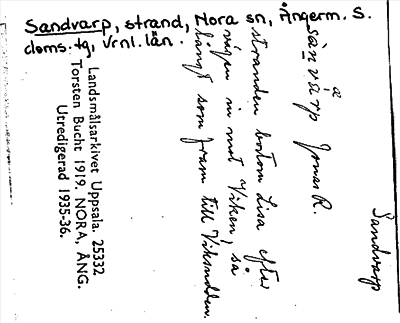 Sandvarp, strand, Nora sn, Ångerm. S.
doms.tg, Vrnl. län.
Sandvarp
a
sànvárp Jonas R.
stranden bortom Lisa efter
vägen in mot Viken, så
långt som fram till Viksudden.
Landsmålsarkivet Uppsala. 25332
Torsten Bucht 1919. NORA, ÅNG.
Utredigerad 1935-36.